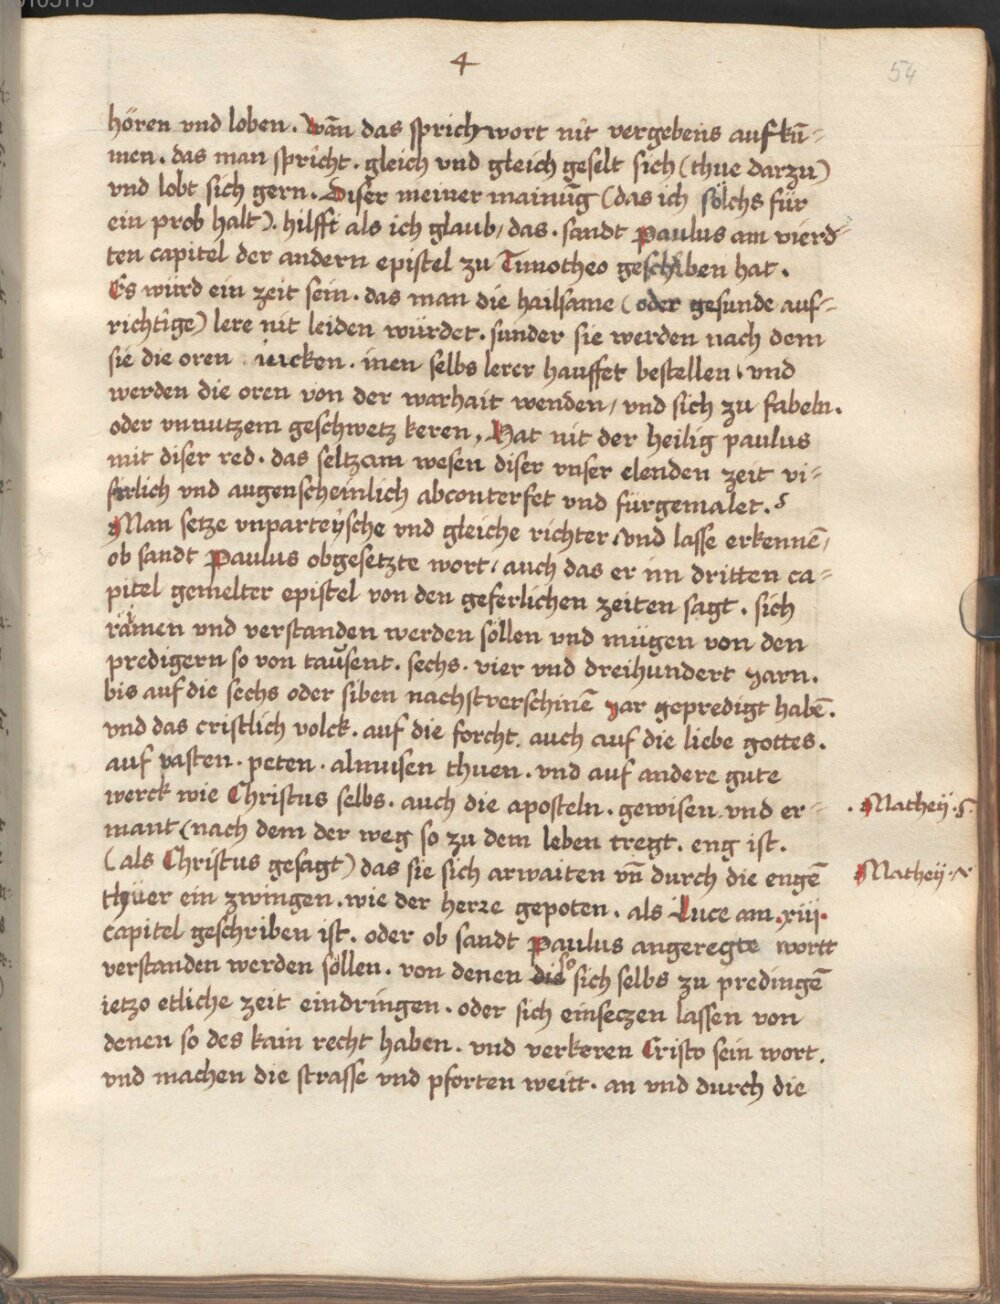 4
54
hören vnd loben. Wān das sprichwort nit vergebens aufkū-
men. das man spricht. gleich vnd gleich geselt sich (thue darzu)
vnd lobt sich gern. Diser meiner mainūg (das ich sölchs für
ein prob halt). hilfft als ich glaub, das. sandt Paulus am vierd
ten capitel der andern epistel zu Timotheo geschriben hat.
Es würd ein zeit sein. das man die hailsame (oder gesunde auf-
richtige) lere nit leiden würdet. sunder sie werden nach dem
sie die oren iucken. inen selbs lerer hauffet bestellen. vnd
werden die oren von der warhait wenden, vnd sich zu fabeln.
oder vnnutzem geschwetz keren, Hat nit der heilig paulus
mit diser red. das seltzam wesen diser vnser elenden zeit vi-
sirlich vnd augenscheinlich abconterfet vnd fürgemalet.
Man setze vnparteÿsche vnd gleiche richter, vnd lasse erkennē,
ob sandt Paulus obgesetzte wort, auch das er im dritten ca-
pitel gemelter epistel von den geferlichen zeiten sagt. sich
rämen vnd verstanden werden söllen vnd mügen von den
predigern so von tausent. sechs. vier vnd dreihundert Jarn.
bis auf die sechs oder siben nachstverschinē Jar gepredigt habē.
vnd das cristlich volck. auf die forcht. auch auf die liebe gottes.
auf vasten. peten. almusen thuen. vnd auf andere gute
werck wie Christus selbs. auch die aposteln. gewisen vnd er-
. Mathey. 5.
mant (nach dem der weg so zu dem leben tregt. eng ist.
(als Christus gesagt) das sie sich arwaiten vn̄ durch die engē
Matheÿ.
thüer ein zwingen. wie der herre gepoten. als Luce am. xiij.
capitel geschriben ist. oder ob sandt Paulus angeregte wortt
verstanden werden söllen. von denen die so sich selbs zu predingē
ietzo etliche zeit eindringen. oder sich einseczen lassen von
denen so des kain recht haben. vnd verkeren Cristo sein wort.
vnd machen die strasse vnd pforten weitt. an vnd durch die